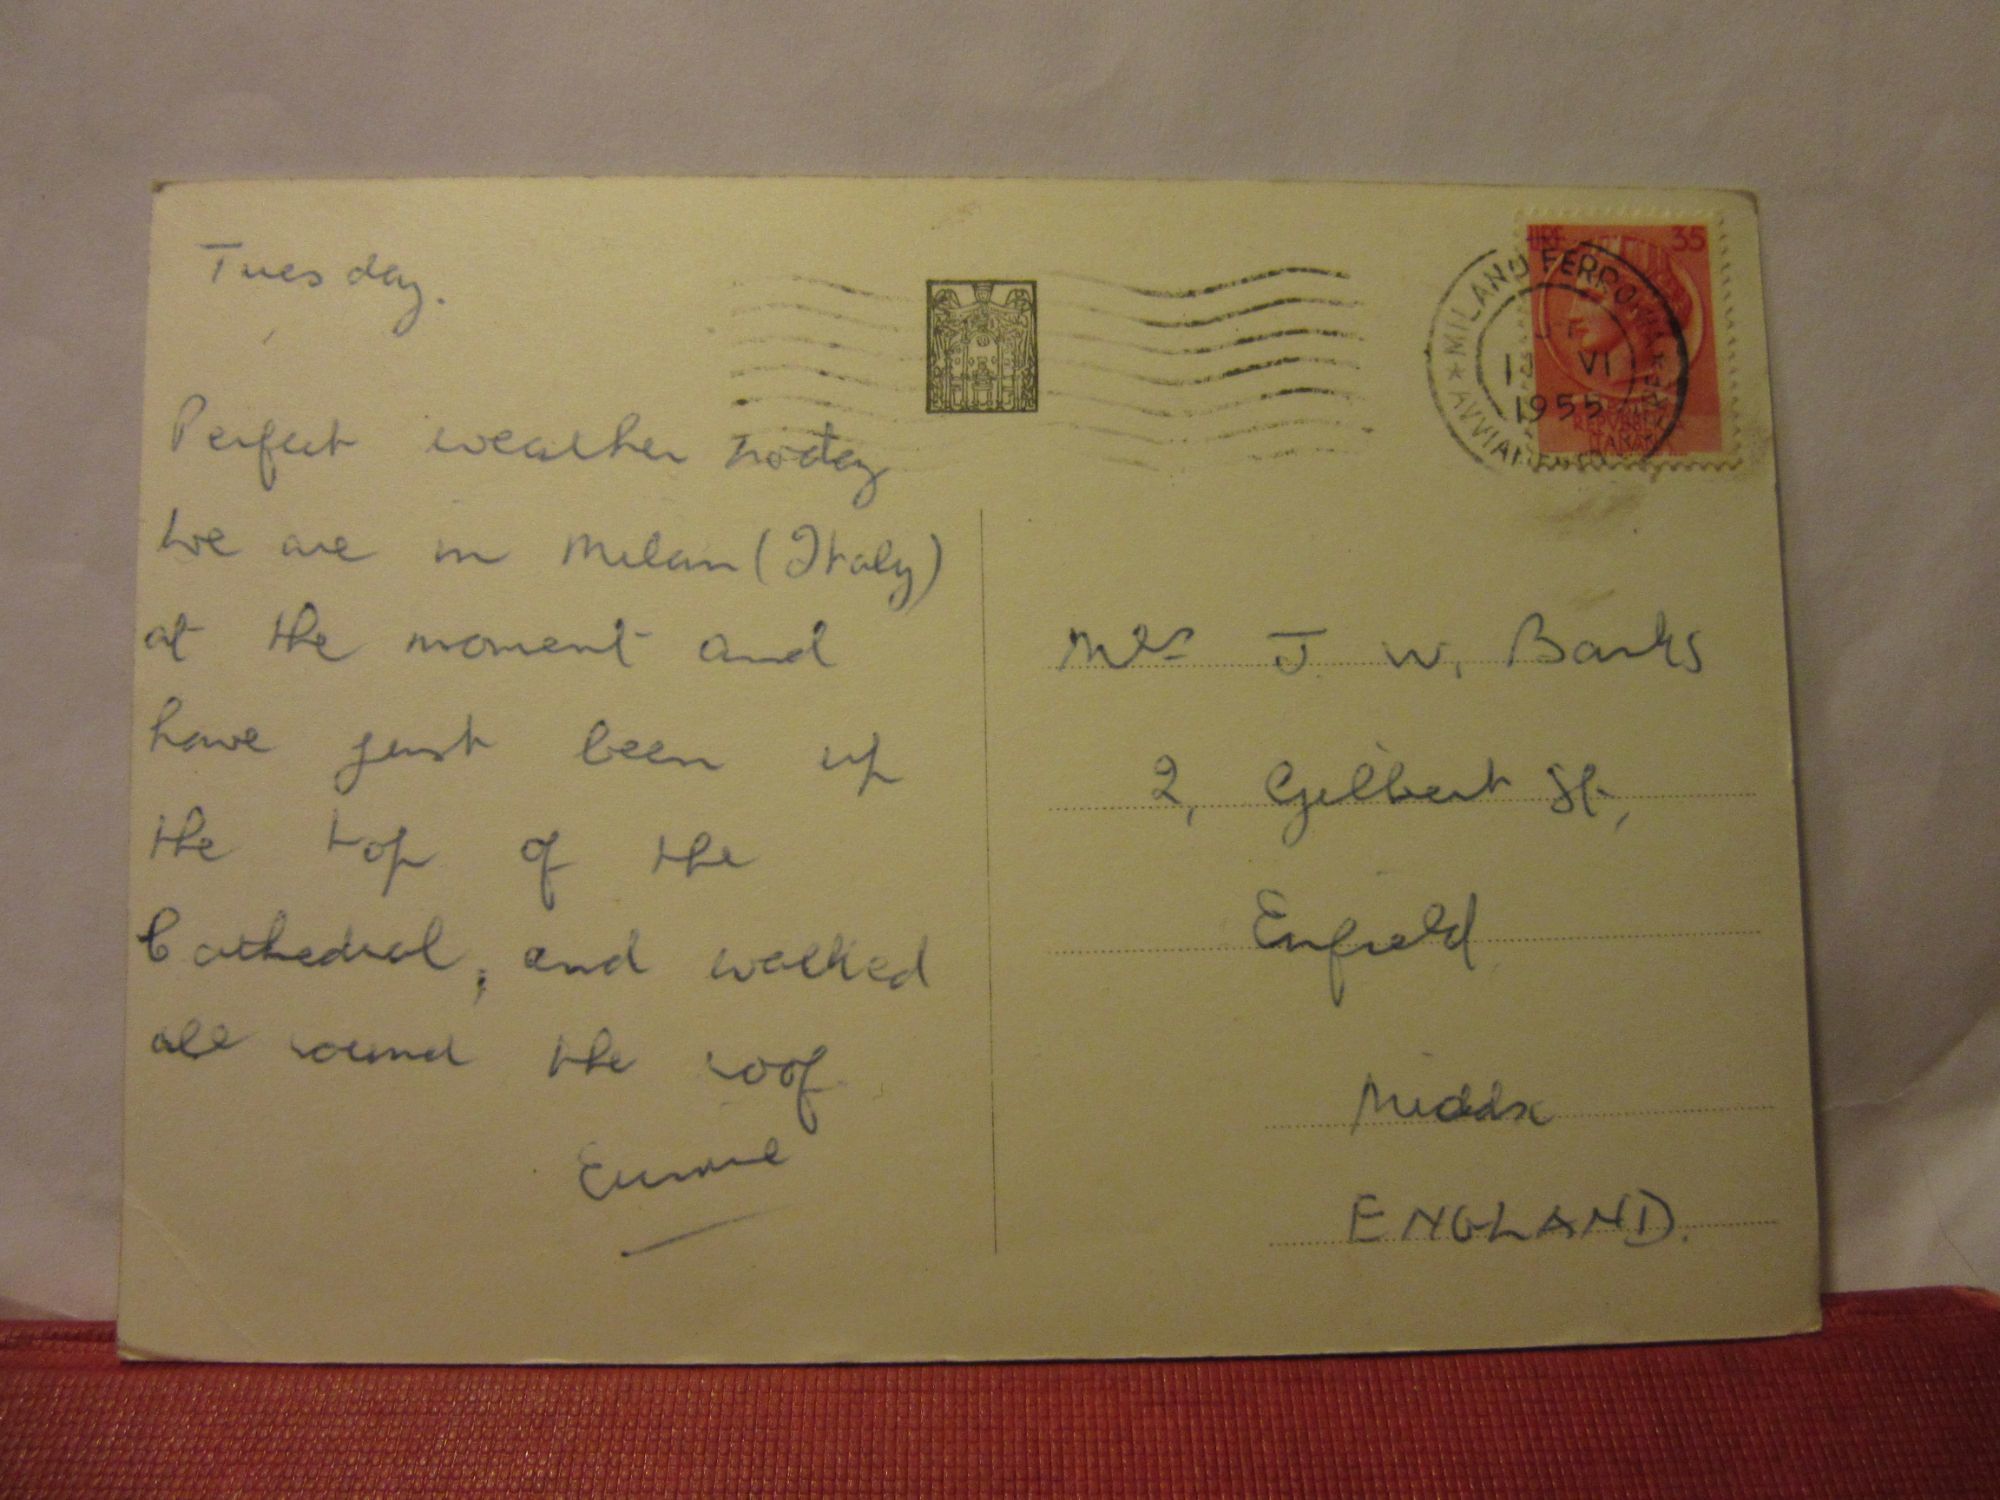 Tuesday.
Perfect weather today
We are in Milan (Italy)
at the moment and
have just been up
the top of the
Cathedral, and walked
all round the roof
MILANO FERROVIA
1955
35
REPVBBLICA
ITALIANA
Mrs J. W. Banks
2, Gilbert St,
Enfield
Middx
ENGLAND.